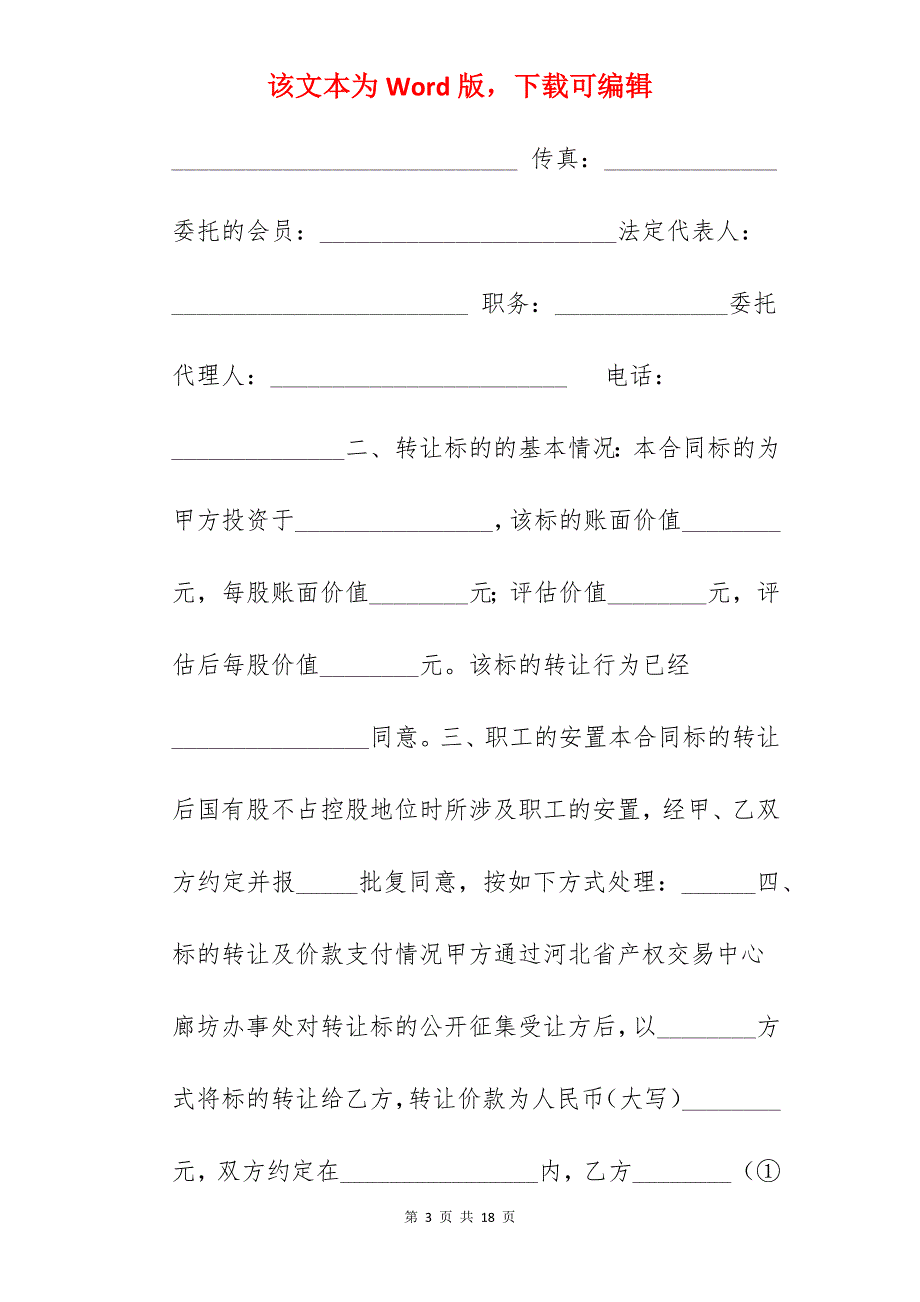 该文本为 Word 版，下载可编辑
____________________________ 传真：______________
委托的会员：________________________法定代表人：
________________________ 职务：______________委托
代理人：________________________ 电话：
______________二、转让标的的基本情况：本合同标的为
甲方投资于________________，该标的账面价值________
元，每股账面价值________元；评估价值________元，评
估后每股价值________元。该标的转让行为已经
________________同意。三、职工的安置本合同标的转让
后国有股不占控股地位时所涉及职工的安置，经甲、乙双
方约定并报_____批复同意，按如下方式处理：______四、
标的转让及价款支付情况甲方通过河北省产权交易中心
廊坊办事处对转让标的公开征集受让方后，以________方
式将标的转让给乙方，转让价款为人民币（大写）________
元，双方约定在________________内，乙方________（①
第 3 页 共 18 页